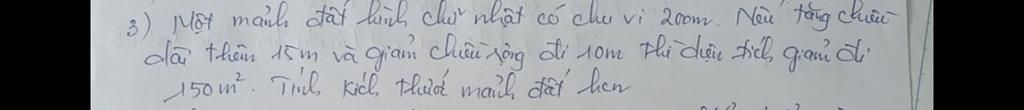 3) Một mảnh đất hình chữ nhật có chu vi 200m. Nếu tăng chiều
dài thêm 15m và giảm chiều rộng đi 10m thì diện tích giảm đi
150m². Tính kích thước mảnh đất